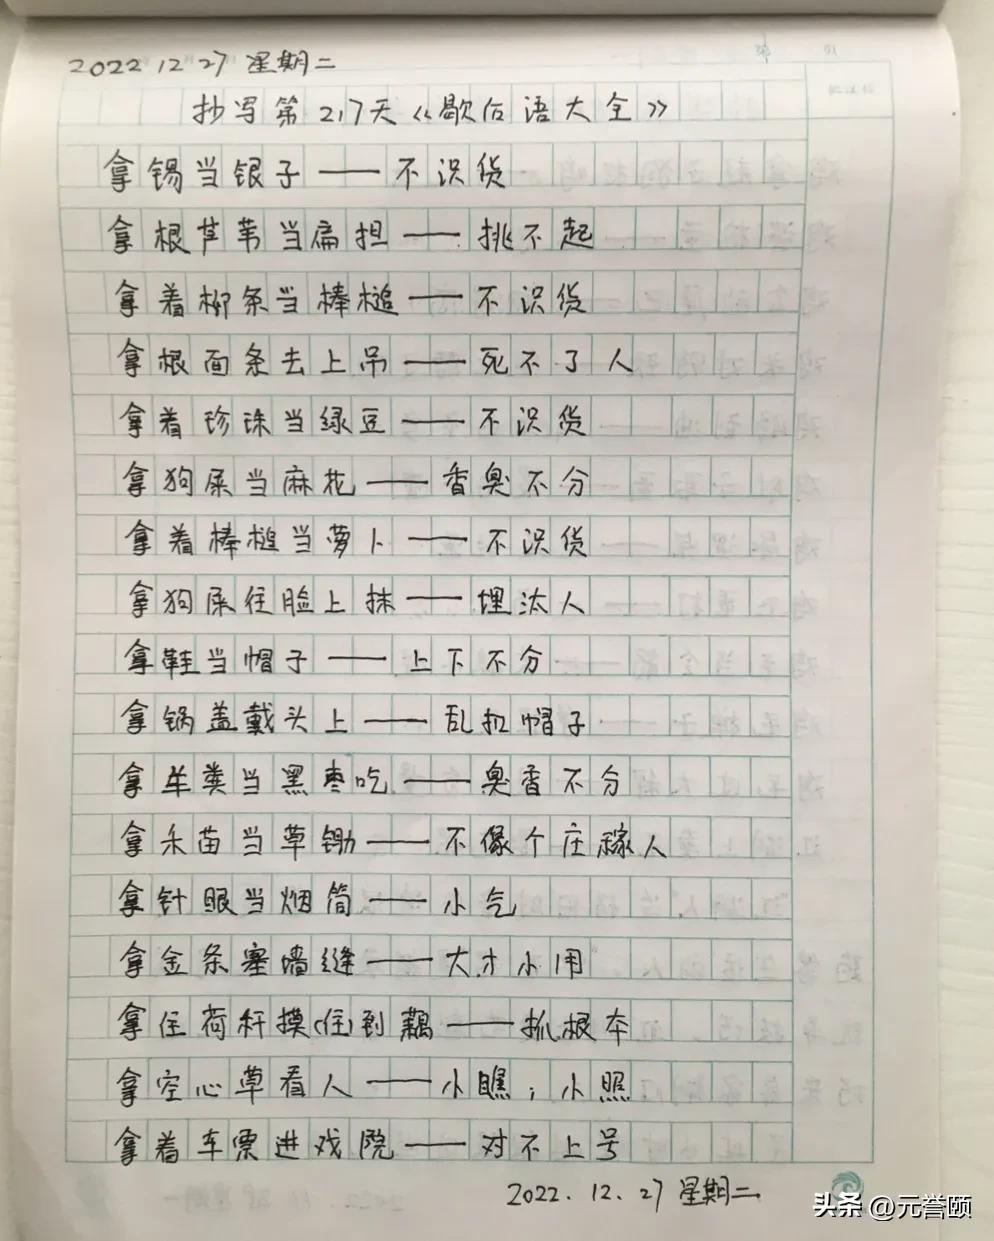 2022 12 27 星期二
抄写第217天《歇后语大全》
拿锡当银子——不识货
拿根芦苇当扁担——挑不起
拿着柳条当棒槌——不识货
拿根面条去上吊——死不了人
拿着珍珠当绿豆——不识货
拿狗屎当麻花——香臭不分
拿着棒槌当萝卜——不识货
拿狗屎往脸上抹——埋汰人
拿鞋当帽子——上下不分
拿锅盖戴头上——乱扣帽子
拿羊粪当黑枣吃——臭香不分
拿禾苗当草锄——不像个庄稼人
拿针眼当烟筒——小气
拿金条塞墙缝——大才小用
拿住荷秆摸(住)到藕——抓根本
拿空心草看人——小瞧；小照
拿着车票进戏院——对不上号
2022.12.27 星期二
头条 @元誉颐